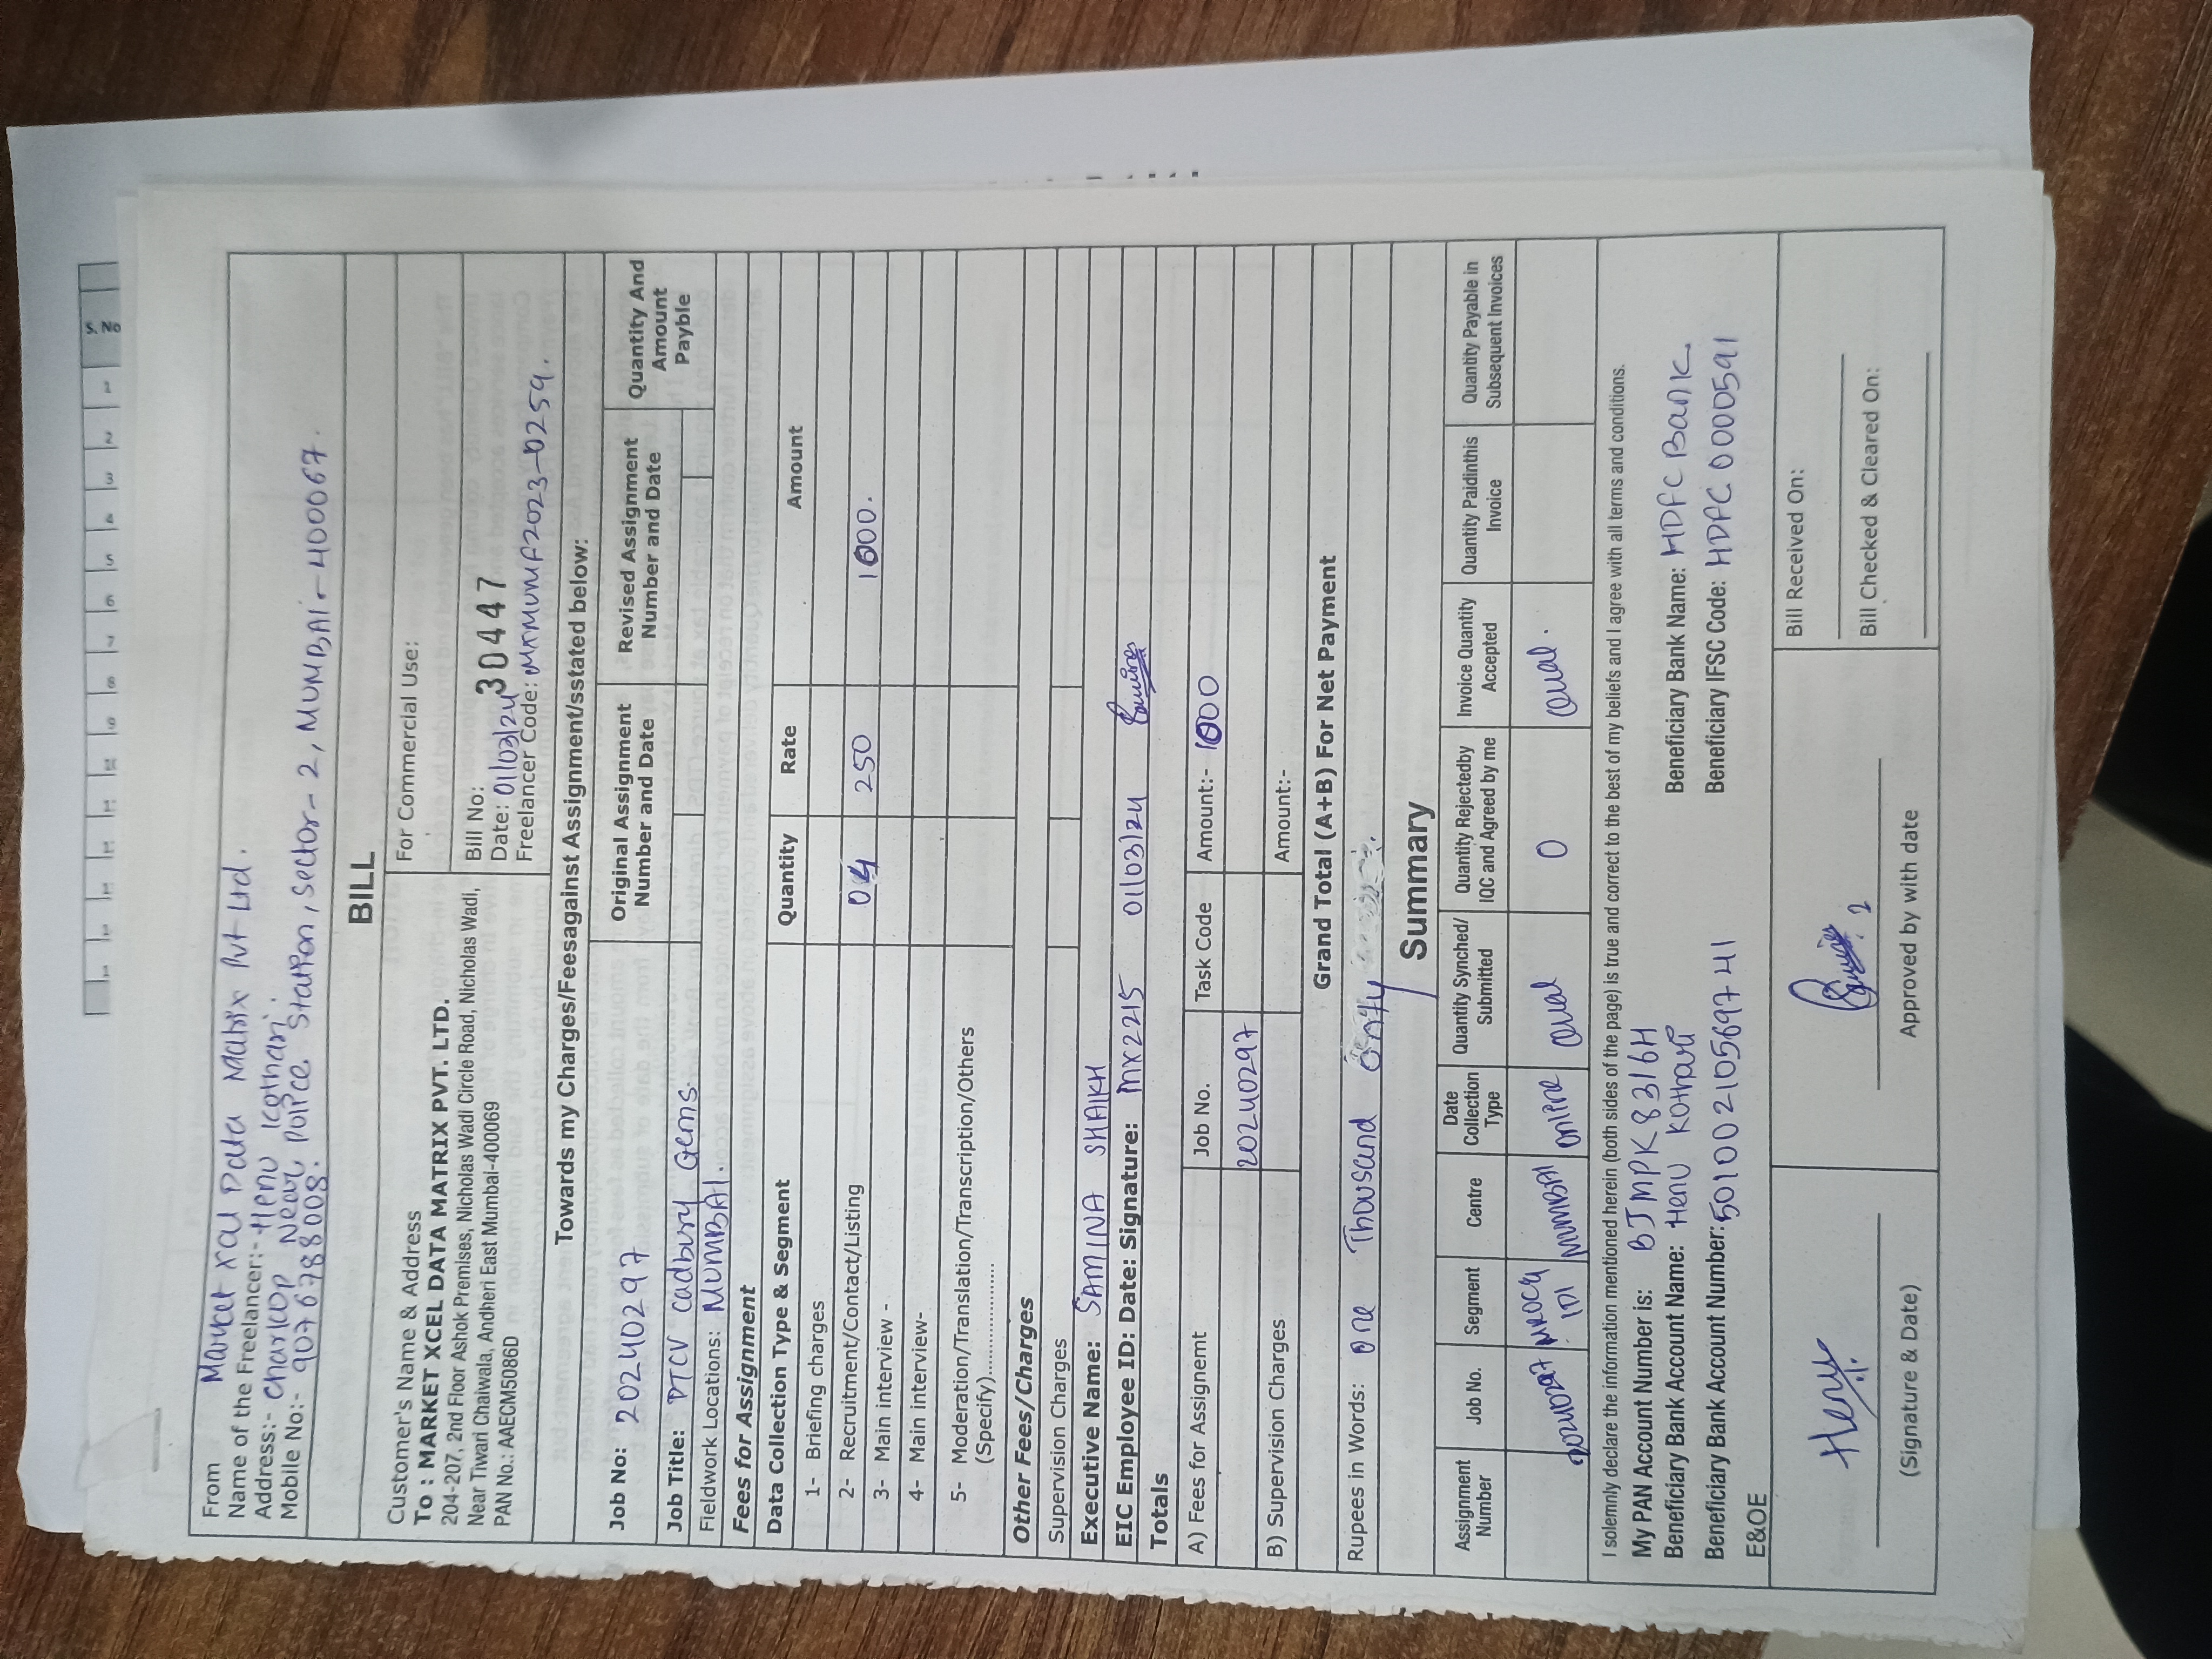 From Market Xcel Data Matrix Pvt Ltd.
Name of the Freelancer:- Henu Kothari.
Address:- Charkop Near Police Station, Sector-2, MUMBAI-400067.
Mobile No:- 9076788008.
BILL
Customer's Name & Address
To : MARKET XCEL DATA MATRIX PVT. LTD.
204-207, 2nd Floor Ashok Premises, Nicholas Wadi Circle Road, Nicholas Wadi,
Near Tiwari Chaiwala, Andheri East Mumbai-400069
PAN No.: AAECM5086D
For Commercial Use:
Bill No: 30447
Date: 01/03/24
Freelancer Code: MXMUMF2023-0259.
Towards my Charges/Feesagainst Assignment/sstated below:
Job No: 20240297
Original Assignment Number and Date
Revised Assignment Number and Date
Quantity And Amount Payble
Job Title: PTCV Cadbury Gems.
Fieldwork Locations: MUMBAI.
Fees for Assignment
Data Collection Type & Segment Quantity Rate Amount
1- Briefing charges
2- Recruitment/Contact/Listing 04 250 1000.
3- Main interview -
4- Main interview-
5- Moderation/Translation/Transcription/Others
(Specify)........................
Other Fees/Charges
Supervision Charges
Executive Name: SAMINA SHAIKH
EIC Employee ID: Date: Signature: MX2215 01/03/24
Totals
A) Fees for Assignemt Job No. Task Code Amount:- 1000
20240297
B) Supervision Charges Amount:-
Grand Total (A+B) For Net Payment
Rupees in Words: One Thousand Only
Summary
Assignment Number Job No. Segment Centre Date Collection Type Quantity Synched/ Submitted Quantity Rejectedby IQC and Agreed by me Invoice Quantity Accepted Quantity Paidinthis Invoice Quantity Payable in Subsequent Invoices
20240297 IDI MUMBAI Online Qual 0 Qual.
I solemnly declare the information mentioned herein (both sides of the page) is true and correct to the best of my beliefs and I agree with all terms and conditions.
My PAN Account Number is: BJMPK8316H
Beneficiary Bank Account Name: Henu Kothari
Beneficiary Bank Name: HDFC Bank.
Beneficiary Bank Account Number: 50100210569741
Beneficiary IFSC Code: HDFC 0000591
E&OE
Henu
(Signature & Date)
Approved by with date
Bill Received On:
Bill Checked & Cleared On:
S. No